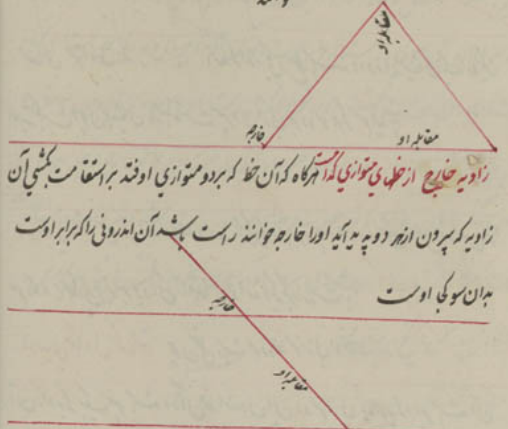 مقابله او
خارجه
مقابله او
زاویه خارج از خطهای متوازی کدامست هرگاه که آن خط که بر دو متوازی اوفتد بر استقامت بکشی آن
زاویه که بیرون از هر دو پدید آید او را خارجه خوانند راست باشد آن اندرونی را که برابر اوست
بدان سو کجا اوست
خارجه
مقابله او